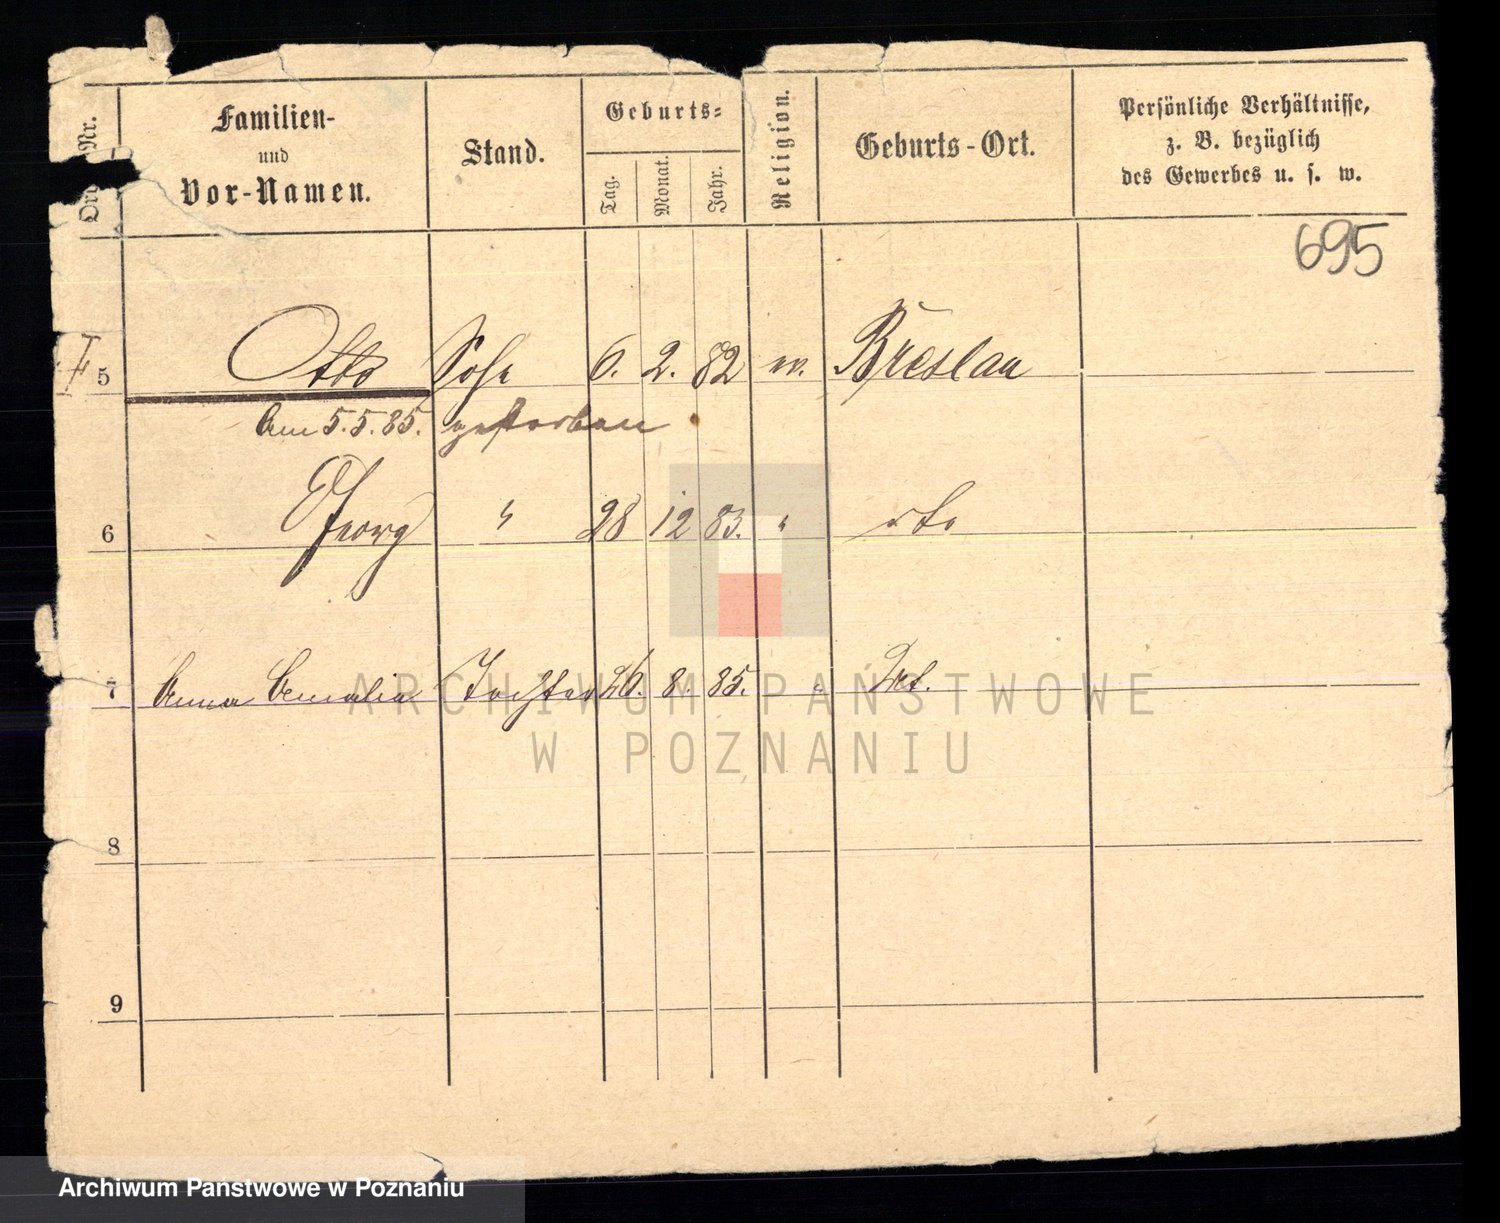 Familien-
und
Vor-Namen.
Stand.
Geburts-
Tag.
Monat.
Jahr.
Religion.
Geburts-Ort.
Persönliche Verhältnisse,
z. B. bezüglich
des Gewerbes u. s. w.
Nr.
695
5 Otto Sohn 6. 2. 82 Breslau
Am 5.5.85. gestorben
6 Georg " 28 12 83. " dto
7 Anna Amalia Tochter 26. 8. 85. "
8
9
ARCHIWUM PAŃSTWOWE
W POZNANIU
Archiwum Państwowe w Poznaniu